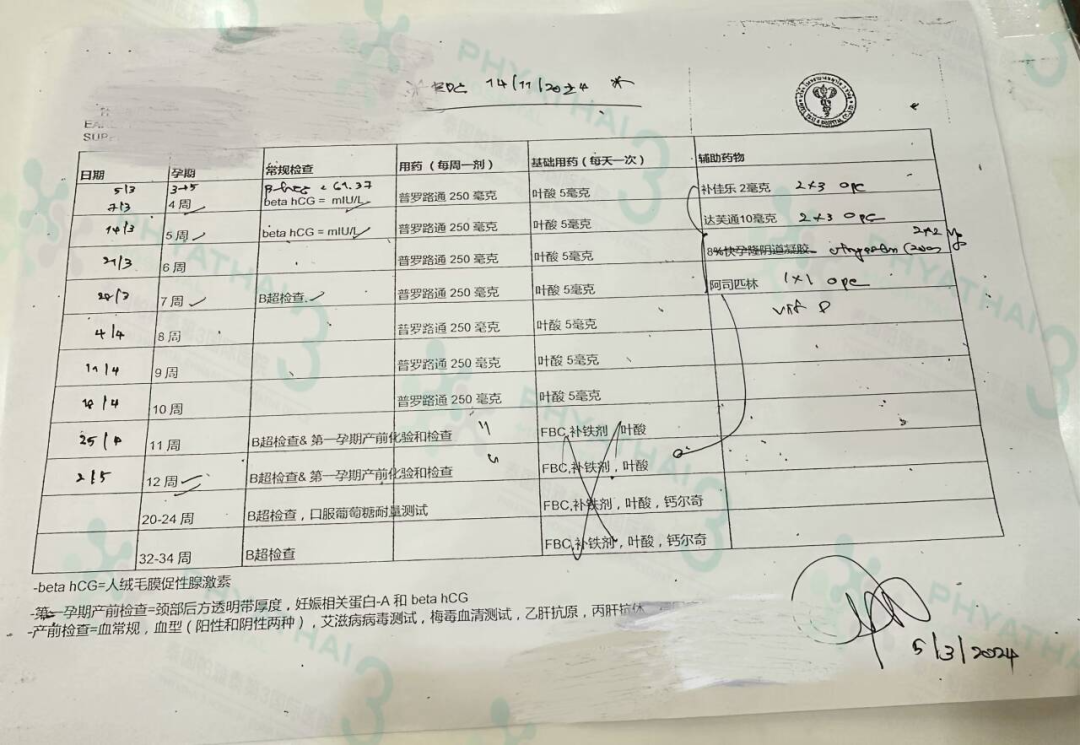 EDC 14/11/2024
日期 孕期 常规检查 用药（每周一剂） 基础用药（每天一次） 辅助药物
5/3 3+5 61.37
7/3 4周 beta hCG = mIU/L 普罗路通 250 毫克 叶酸 5毫克 补佳乐 2毫克 2x3 opc
14/3 5周 beta hCG = mIU/L 普罗路通 250 毫克 叶酸 5毫克 达芙通10毫克 2x3 opc
21/3 6周 普罗路通 250 毫克 叶酸 5毫克 8%快孕隆阴道凝胶 2x2
28/3 7周 B超检查 普罗路通 250 毫克 叶酸 5毫克 阿司匹林 1x1 opc
4/4 8周 普罗路通 250 毫克 叶酸 5毫克
11/4 9周 普罗路通 250 毫克 叶酸 5毫克
18/4 10周 普罗路通 250 毫克 叶酸 5毫克
25/4 11周 B超检查& 第一孕期产前化验和检查 FBC,补铁剂，叶酸
2/5 12周 B超检查& 第一孕期产前化验和检查 FBC,补铁剂，叶酸
20-24 周 B超检查，口服葡萄糖耐量测试 FBC,补铁剂，叶酸，钙尔奇
32-34 周 B超检查 FBC,补铁剂，叶酸，钙尔奇
-beta hCG=人绒毛膜促性腺激素
-第一孕期产前检查=颈部后方透明带厚度，妊娠相关蛋白-A 和 beta hCG
-产前检查=血常规，血型（阳性和阴性两种），艾滋病病毒测试，梅毒血清测试，乙肝抗原，丙肝抗体
5/3/2024
PHYATHAI 3